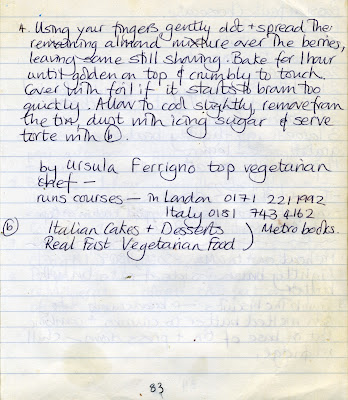 4. Using your fingers gently dot + spread the
remaining almond mixture over the berries,
leaving some still showing. Bake for 1 hour
until golden on top & crumbly to touch.
Cover with foil if it starts to brown too
quickly. Allow to cool slightly, remove from
the tin, dust with icing sugar & serve
torte with (b).
by Ursula Ferrigno top vegetarian
chef —
runs courses — in London 0171 221 1992
Italy 0181 743 4162
(b) Italian Cakes + Desserts ) Metro books.
Real Fast Vegetarian Food )
83